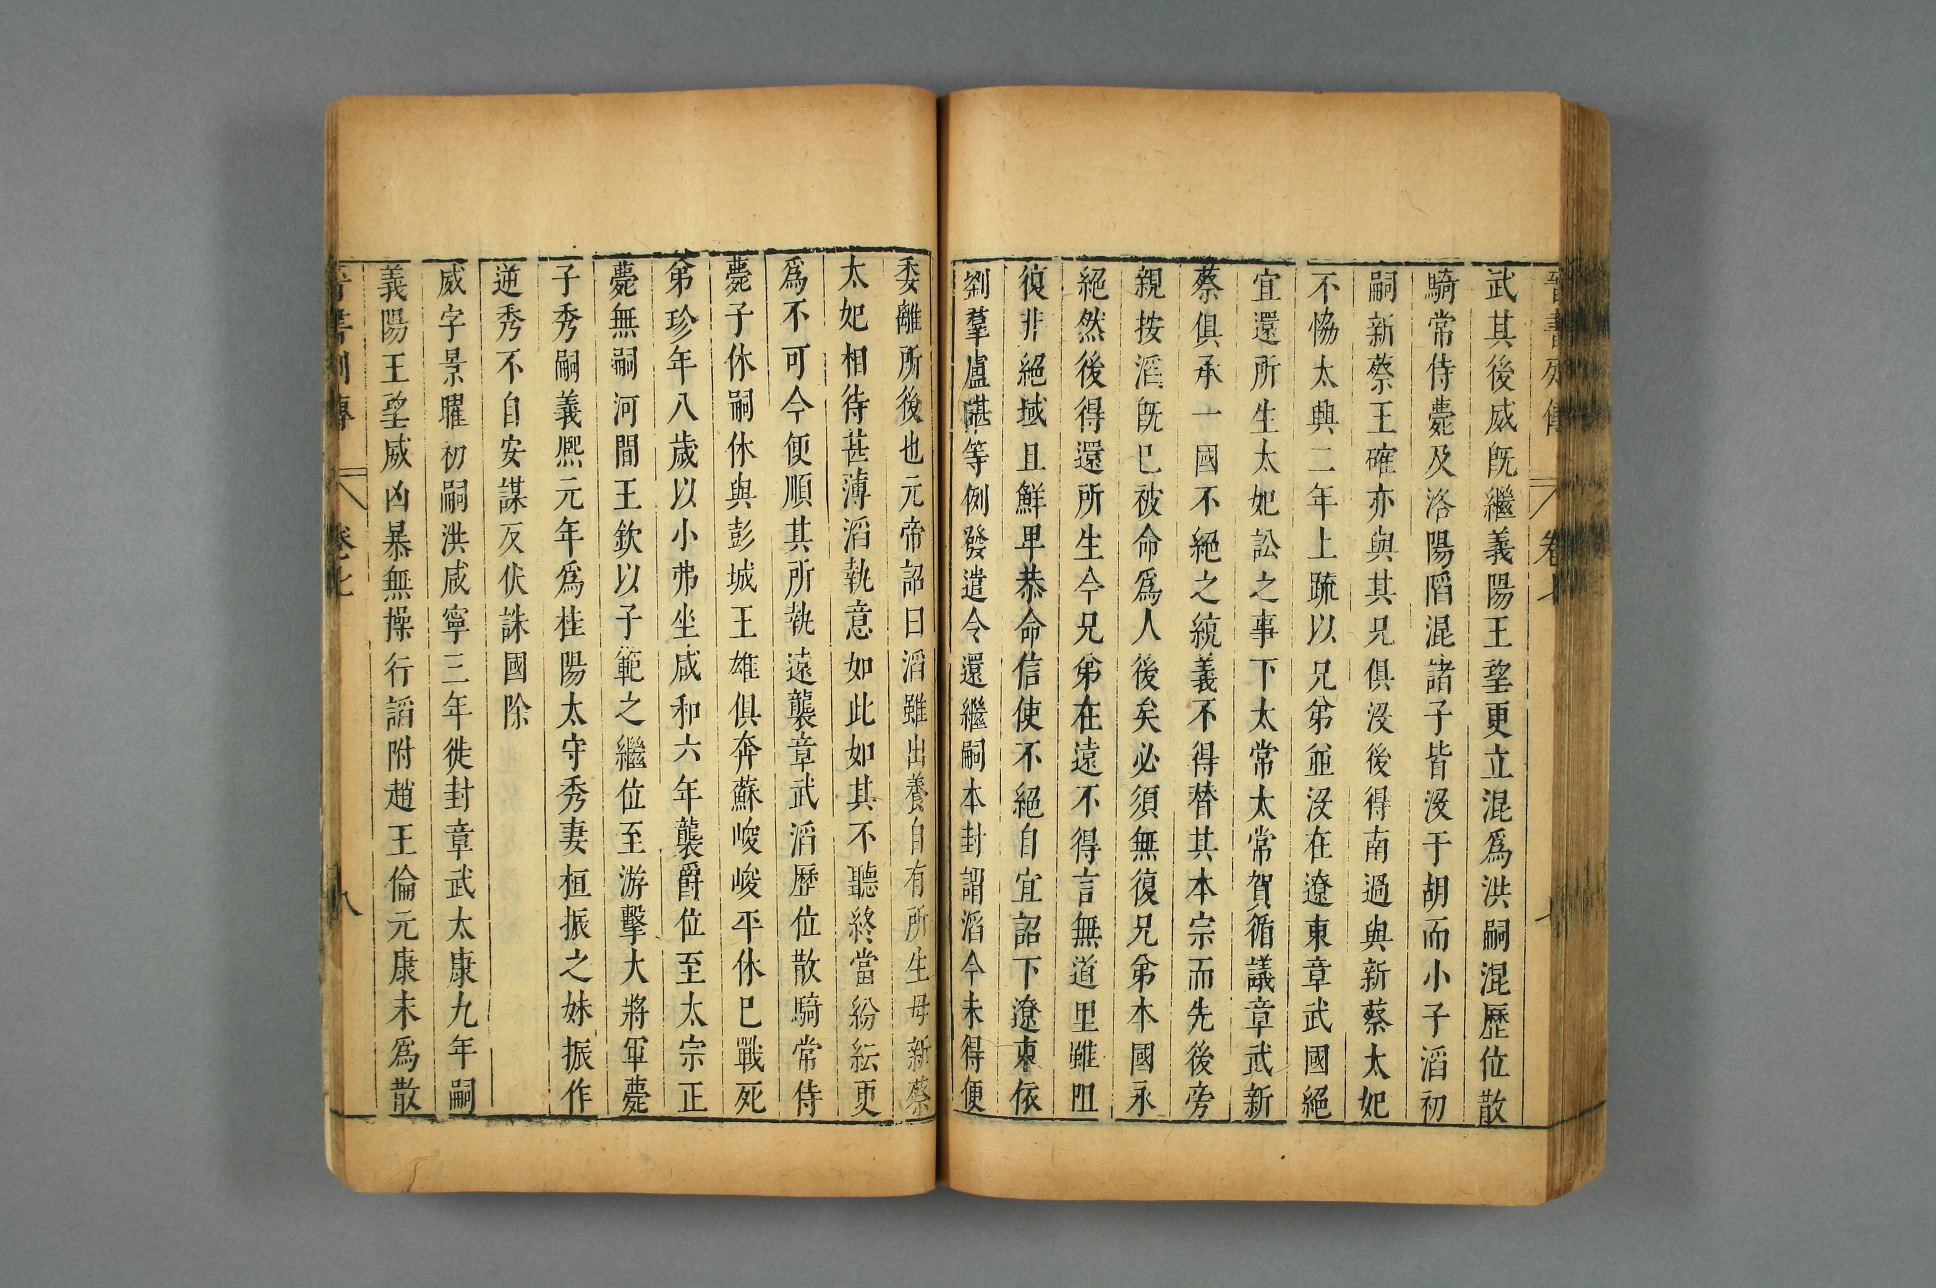 晉書列傳 卷七 七
武其後威旣繼義陽王望更立混爲洪嗣混歷位散
騎常侍薨及洛陽䧟混諸子皆沒于胡而小子滔初
嗣新蔡王確亦與其兄俱沒後得南過與新蔡太妃
不恊太興二年上疏以兄弟並沒在遼東章武國絕
宜還所生太妃訟之事下太常太常賀循議章武新
蔡俱承一國不絕之統義不得替其本宗而先後旁
親按滔旣已被命爲人後矣必須無復兄弟本國永
絕然後得還所生今兄弟在遠不得言無道里雖阻
復非絕域且鮮卑恭命信使不絕自宜詔下遼東依
劉羣盧諶等例發遣令還繼嗣本封謂滔今未得便
委離所後也元帝詔曰滔雖出養自有所生母新蔡
太妃相待甚薄滔執意如此如其不聽終當紛紜更
爲不可今便順其所執遠襲章武滔歷位散騎常侍
薨子休嗣休與彭城王雄俱奔蘇峻峻平休已戰死
弟珍年八歲以小弗坐咸和六年襲爵位至太宗正
薨無嗣河間王欽以子範之繼位至游擊大將軍薨
子秀嗣義熙元年爲桂陽太守秀妻桓振之妹振作
逆秀不自安謀反伏誅國除
威字景曜初嗣洪咸寧三年徙封章武太康九年嗣
義陽王望威凶暴無操行謟附趙王倫元康末爲散
晉書列傳 卷七 八